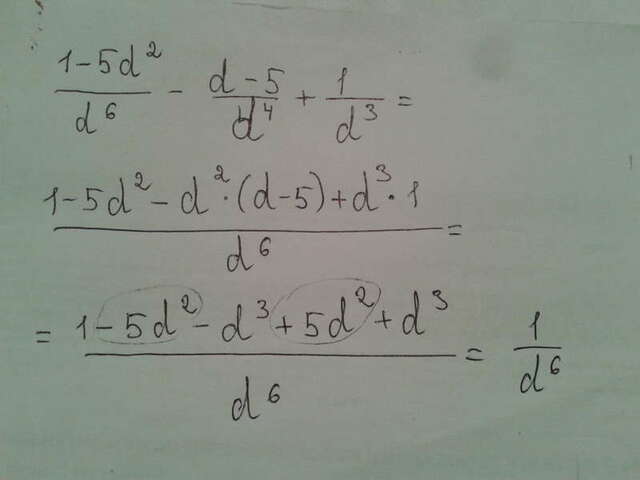 (1-5d²)/d⁶ - (d-5)/d⁴ + 1/d³ =
(1-5d²-d²·(d-5)+d³·1)/d⁶ =
= (1-5d²-d³+5d²+d³)/d⁶ = 1/d⁶